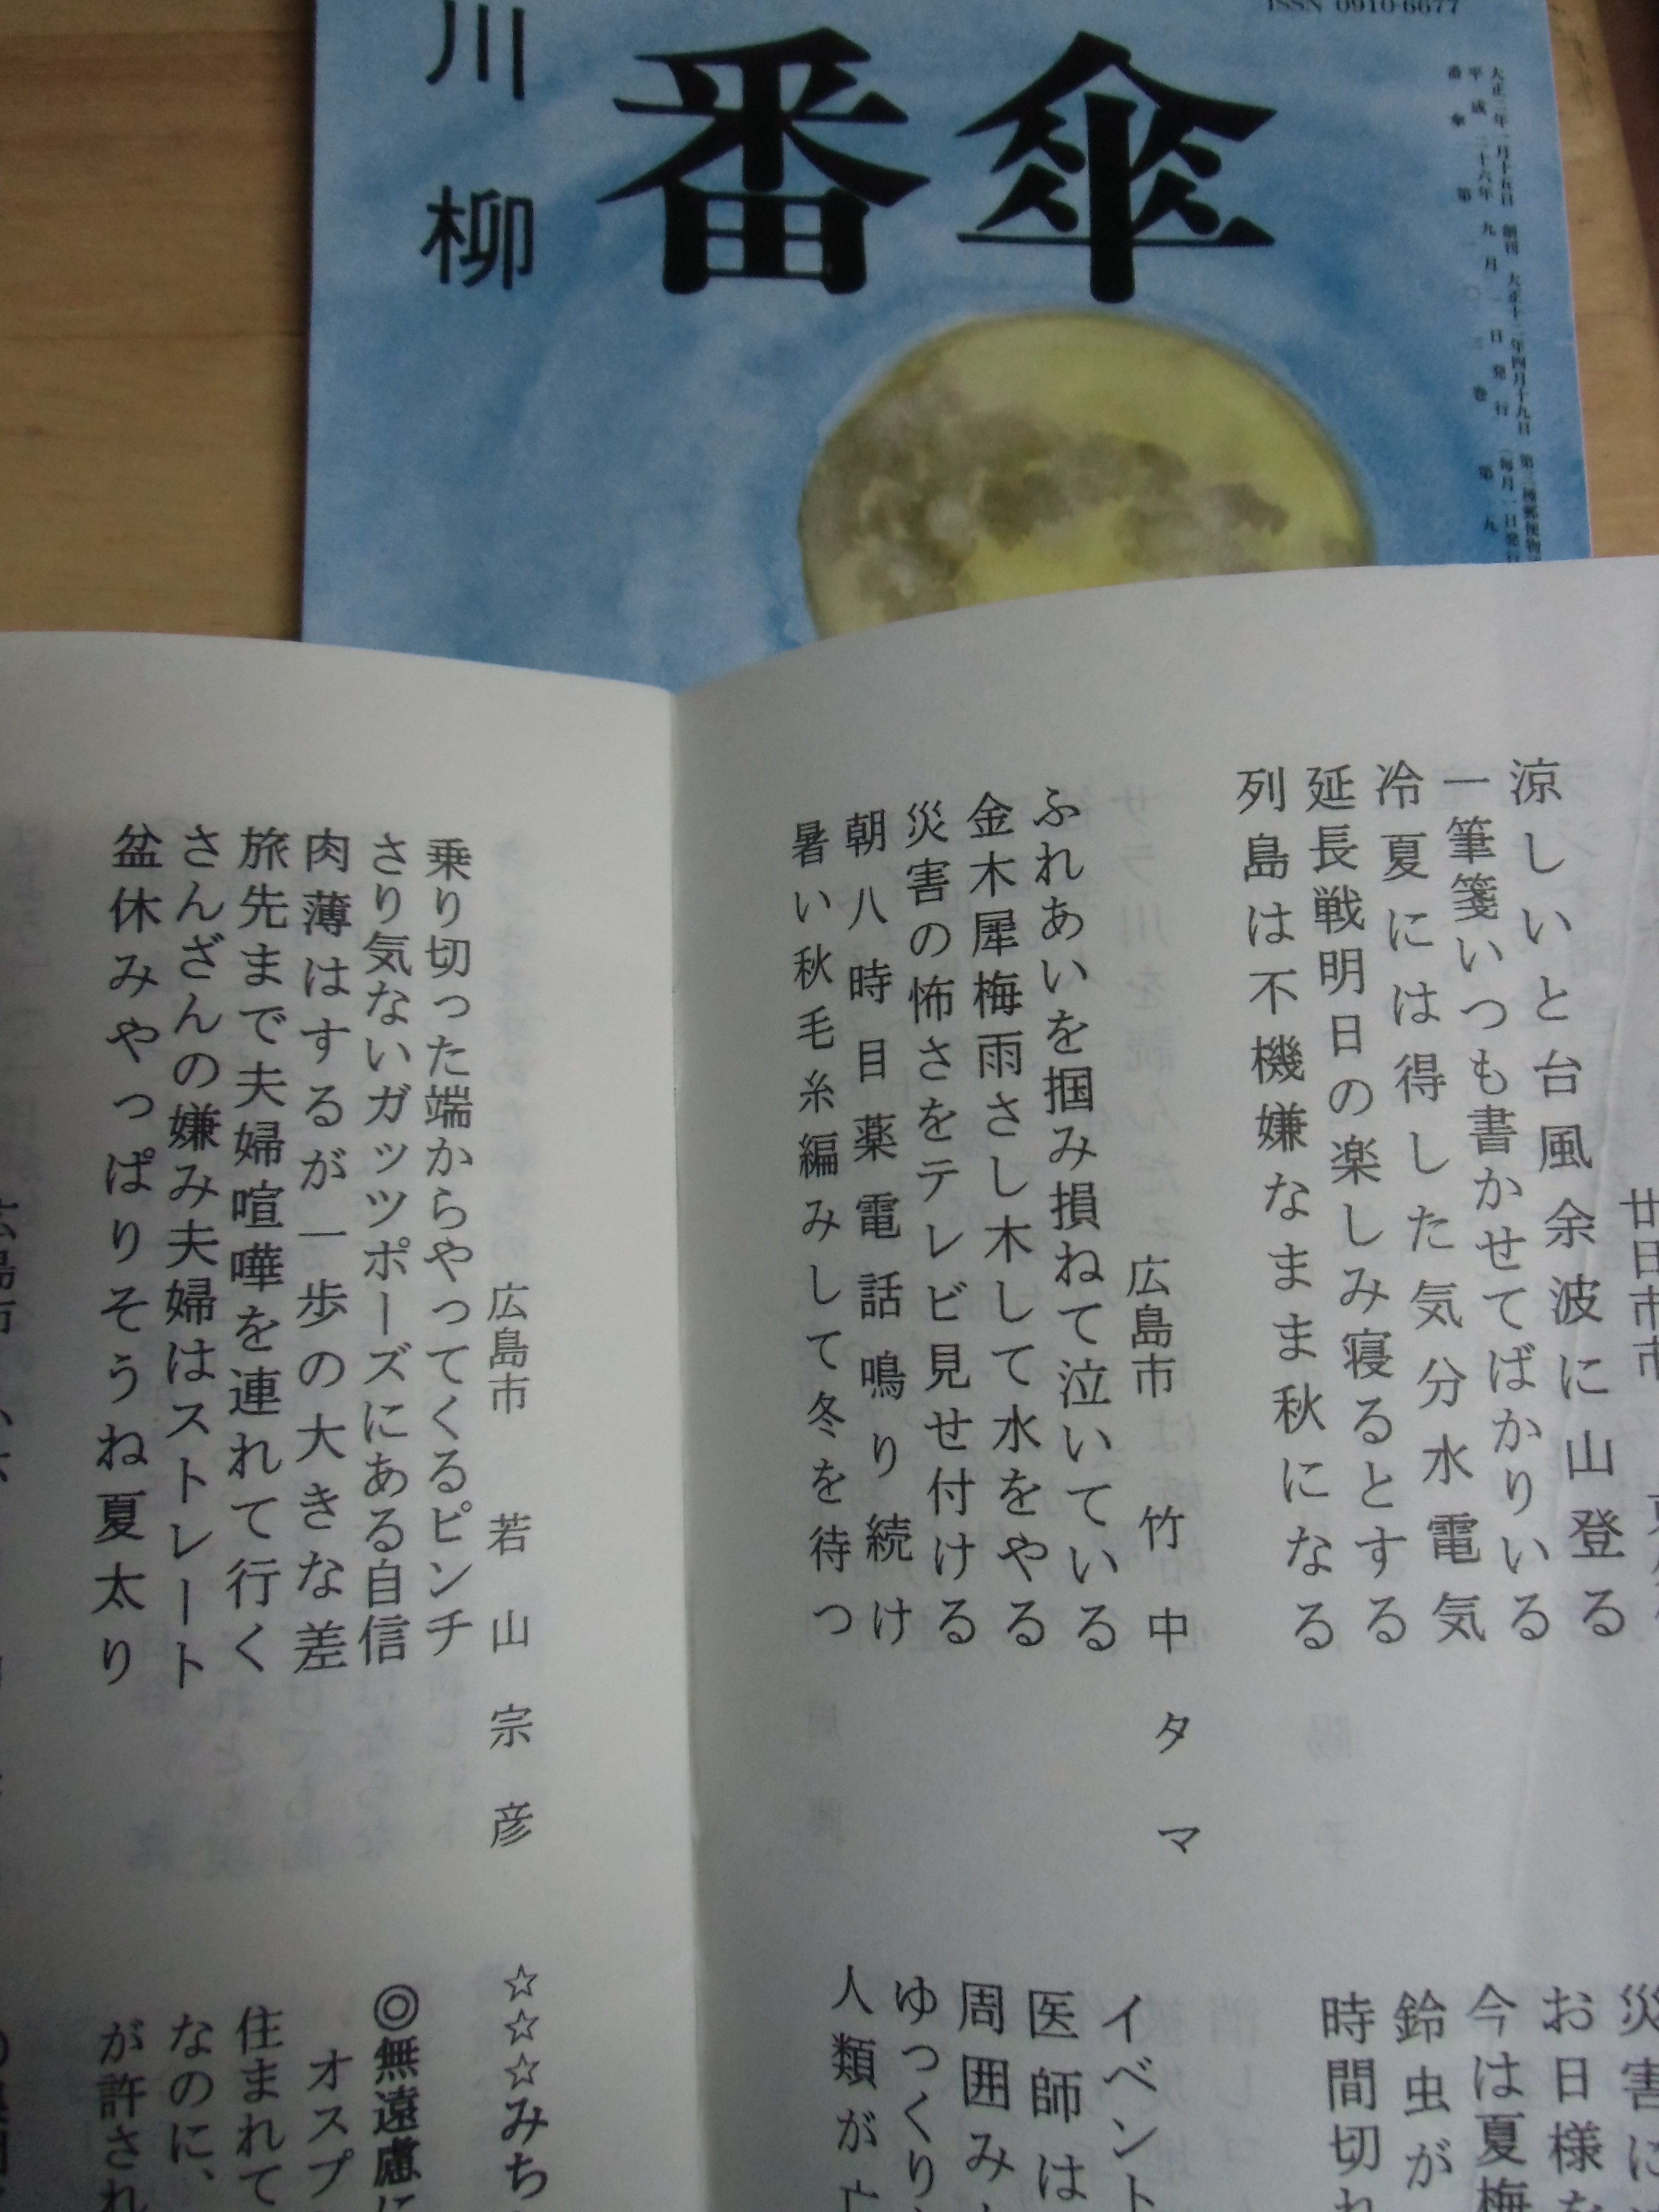 ISSN 0910-6677
川柳
番傘
大正三年一月十五日 創刊 大正十二年四月十九日 第三種郵便物
平成二十六年九月一日発行 (毎月一日発行
番傘 第一〇三巻 第九
廿日市市
涼しいと台風余波に山登る
一筆箋いつも書かせてばかりいる
冷夏には得した気分水電気
延長戦明日の楽しみ寝るとする
列島は不機嫌なまま秋になる
広島市 竹中タマ
ふれあいを掴み損ねて泣いている
金木犀梅雨さし木して水をやる
災害の怖さをテレビ見せ付ける
朝八時目薬電話鳴り続け
暑い秋毛糸編みして冬を待つ
災害に
お日様を
今は夏梅
鈴虫が
時間切れ
イベント
医師は
周囲み
ゆっくり
人類が亡
広島市 若山宗彦
乗り切った端からやってくるピンチ
さり気ないガッツポーズにある自信
肉薄はするが一歩の大きな差
旅先まで夫婦喧嘩を連れて行く
さんざんの嫌み夫婦はストレート
盆休みやっぱりそうね夏太り
広島市
☆☆☆みち
◎無遠慮に
オスプ
住まれて
なのに、
が許され